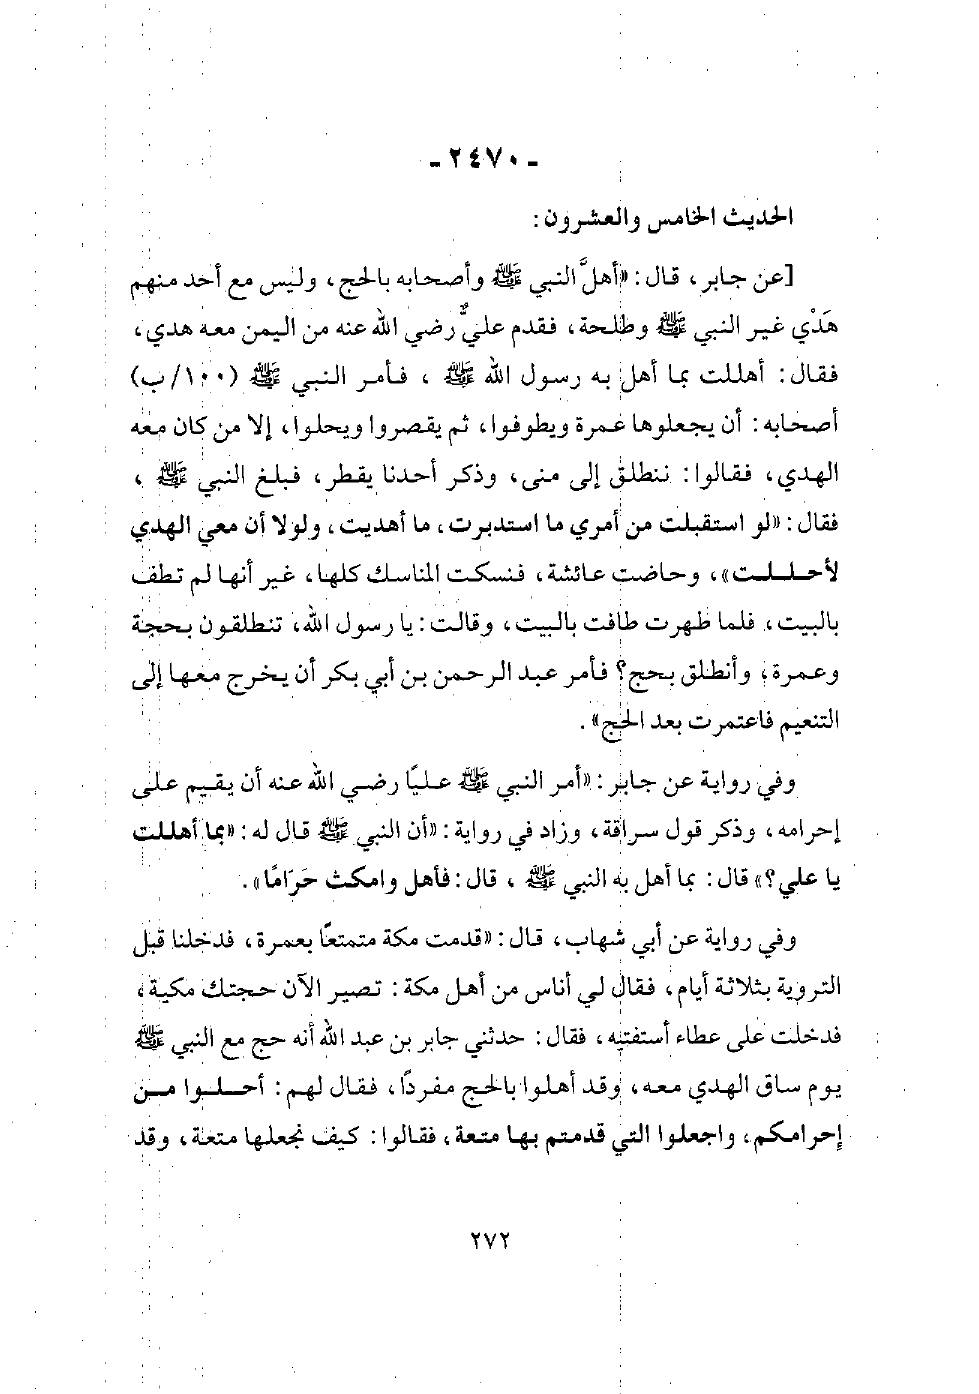 - ٢٤٧٠ -
الحديث الخامس والعشرون:
[عن جابر، قال: «أهلَّ النبي ﷺ وأصحابه بالحج، وليس مع أحد منهم
هَدْي غير النبي ﷺ وطلحة، فقدم عليٌّ رضي الله عنه من اليمن معه هدي،
فقال: أهللت بما أهل به رسول الله ﷺ ، فأمر النبي ﷺ (١٠٠/ب)
أصحابه: أن يجعلوها عمرة ويطوفوا، ثم يقصروا ويحلوا، إلا من كان معه
الهدي، فقالوا: ننطلق إلى منى، وذكر أحدنا يقطر، فبلغ النبي ﷺ ،
فقال: «لو استقبلت من أمري ما استدبرت، ما أهديت، ولولا أن معي الهدي
لأحللت»، وحاضت عائشة، فنسكت المناسك كلها، غير أنها لم تطف
بالبيت، فلما طهرت طافت بالبيت، وقالت: يا رسول الله، تنطلقون بحجة
وعمرة، وأنطلق بحج؟ فأمر عبد الرحمن بن أبي بكر أن يخرج معها إلى
التنعيم فاعتمرت بعد الحج».
وفي رواية عن جابر: «أمر النبي ﷺ عليًا رضي الله عنه أن يقيم على
إحرامه، وذكر قول سراقة، وزاد في رواية: «أن النبي ﷺ قال له: «بما أهللت
يا علي؟» قال: بما أهل به النبي ﷺ ، قال: فأهل وامكث حَرَامًا».
وفي رواية عن أبي شهاب، قال: «قدمت مكة متمتعًا بعمرة، فدخلنا قبل
التروية بثلاثة أيام، فقال لي أناس من أهل مكة: تصير الآن حجتك مكية،
فدخلت على عطاء أستفتيه، فقال: حدثني جابر بن عبد الله أنه حج مع النبي ﷺ
يوم ساق الهدي معه، وقد أهلوا بالحج مفردًا، فقال لهم: أحلوا من
إحرامكم، واجعلوا التي قدمتم بها متعة، فقالوا: كيف نجعلها متعة، وقد
٢٧٢